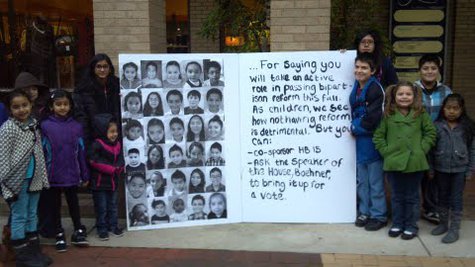 ... For Saying you
will take an active
role in bipart-
isan reform this fall.
As children, we see
how not having reform
is detrimental. But you
can:
- co-sponsor HB 15
- ASK the Speaker of
the House, Boehner,
to bring it up for
a vote.